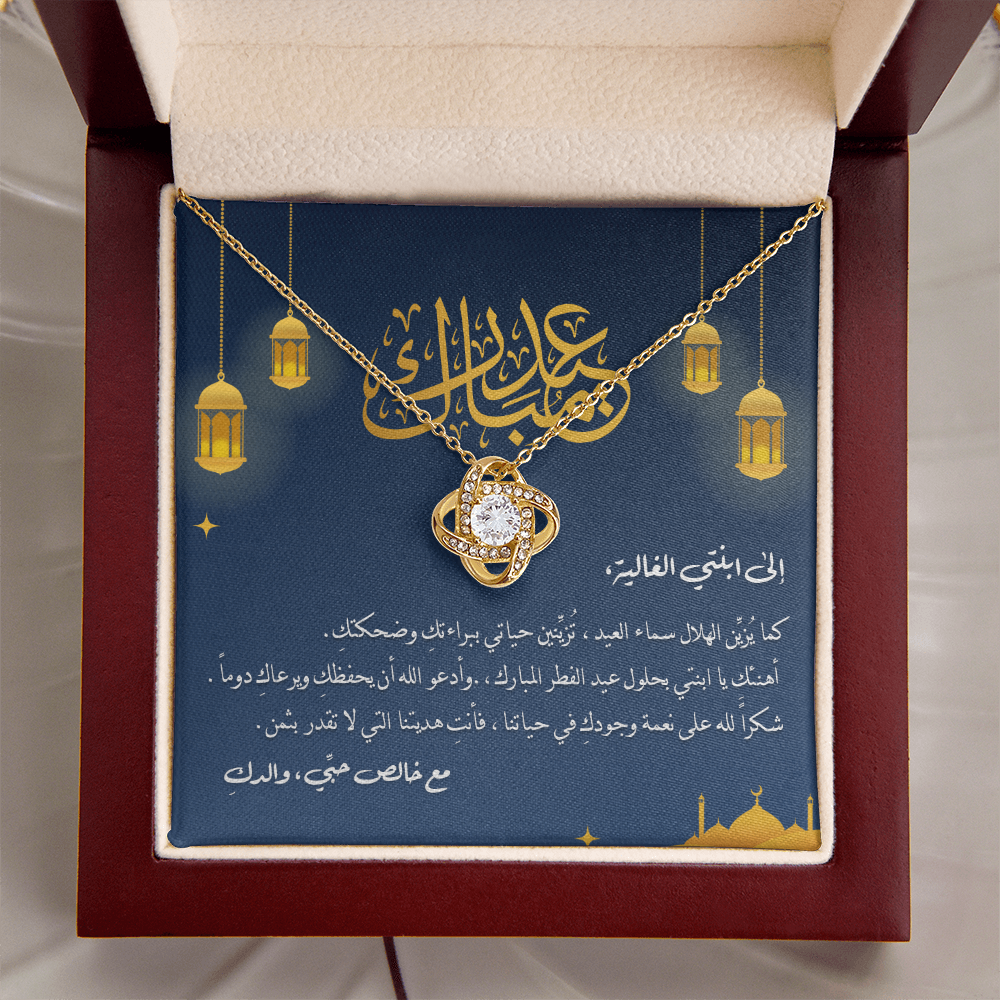 عيد مُبارك
إلى ابنتي الغالية،
كما يُزيِّن الهلال سماء العيد ، تُزيِّنين حياتي ببراءتكِ وضحكتكِ.
أهنئكِ يا ابنتي بحلول عيد الفطر المبارك، .وأدعو الله أن يحفظكِ ويرعاكِ دوماً .
شكراً لله على نعمة وجودكِ في حياتنا ، فأنتِ هديتنا التي لا تقدر بثمن .
مع خالص حبّي، والدكِ